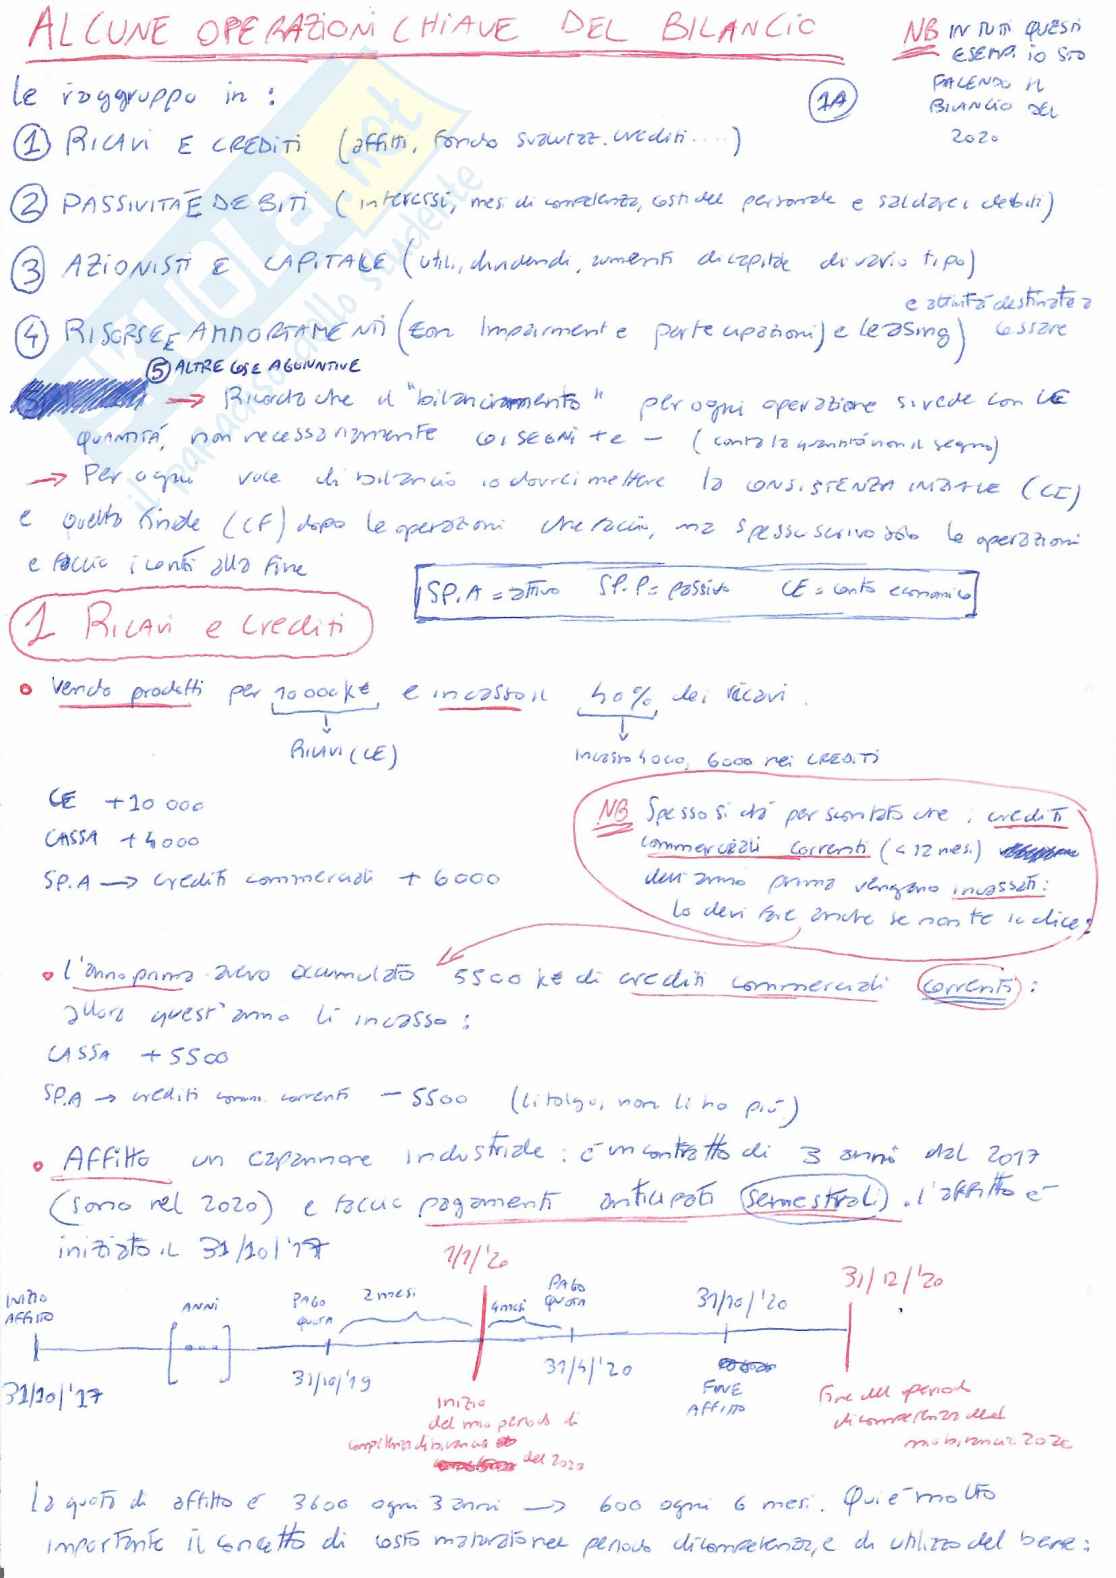 ALCUNE OPERAZIONI CHIAVE DEL BILANCIO
NB IN TUTTI QUESTI
ESEMP. io STO
FACENDO IL
BILANCIO DEL
2020
le raggruppo in :
1A
① RICAVI E CREDITI (affitti, Fondo svalutaz. crediti ....)
② PASSIVITÀ E DEBITI (interessi, mesi di competenza, costi del personale e saldare i debiti)
③ AZIONISTI E CAPITALE (utili, dividendi, aumenti di capitale di vario tipo)
④ RISORSE E AMMORTAMENTI (con Impairment e partecipazioni) e leasing)
e attività destinate a
cessare
⑤ ALTRE COSE AGGIUNTIVE
→ Ricorda che il "bilanciamento" per ogni operazione si vede con LE
QUANTITÀ, non necessariamente coi SEGNI + e - (conta la quantità non il segno)
→ Per ogni voce di bilancio io dovrei mettere la CONSISTENZA INIZIALE (CI)
e quella finale (CF) dopo le operazioni che faccio, ma spesso scrivo solo le operazioni
e faccio i conti alla fine
SP.A = attivo SP.P = passivo CE = conto economico
1 Ricavi e crediti
• Vendo prodotti per 10000 k€ e incasso il 40% dei ricavi.
RICAVI (CE)
Incasso 4000, 6000 nei CREDITI
CE +10 000
CASSA +4000
SP.A → crediti commerciali +6000
NB Spesso si dà per scontato che i crediti
commerciali correnti (< 12 mesi)
dell'anno prima vengano incassati:
lo devi fare anche se non te lo dice!
• l'anno prima avevo accumulato 5500 k€ di crediti commerciali correnti :
allora quest'anno li incasso :
CASSA +5500
SP.A → crediti comm. correnti -5500 (li tolgo, non li ho più)
• Affitto un capannone industriale : è un contratto di 3 anni dal 2017
(sono nel 2020) e faccio pagamenti anticipati semestrali. l'affitto è
iniziato il 31/10/'17
1/1/'20
31/12/'20
INIZIO
AFFITTO
ANNI
PAGO
QUOTA
2 mesi
4 mesi
PAGO
QUOTA
31/10/'20
....
31/10/'17
31/10/'19
31/4/'20
FINE
AFFITTO
inizio
del mio periodo di
competenza di bilancio
del 2020
Fine del periodo
di competenza del
mio bilancio 2020
la quota di affitto è 3600 ogni 3 anni → 600 ogni 6 mesi. Qui è molto
importante il concetto di costo maturato nel periodo di competenza, e di utilizzo del bene :
SKUOLA.net
il paradiso dello studente